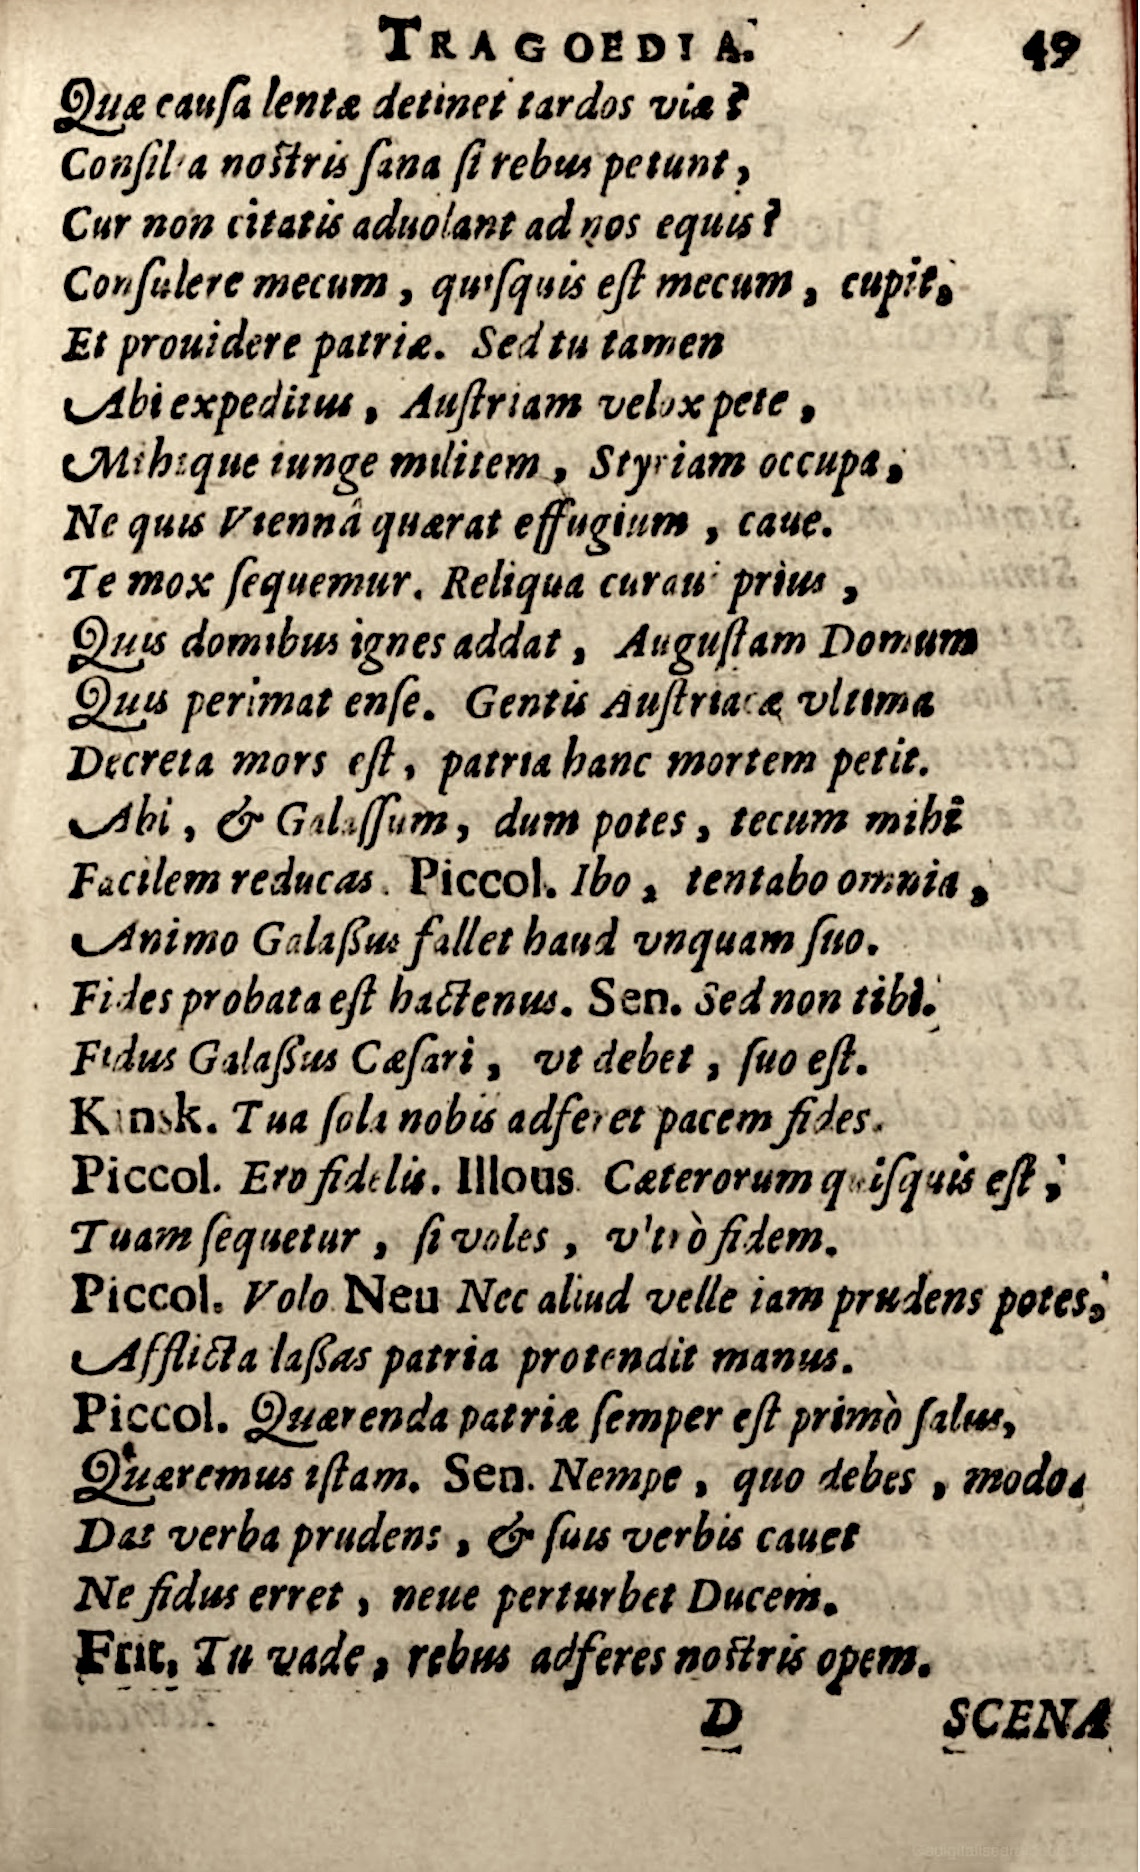 TRAGOEDIA. 49
Quæ cauſa lentæ detinet tardos viæ?
Conſilia noſtris ſana ſi rebus petunt,
Cur non citatis aduolant ad nos equis?
Conſulere mecum, quiſquis eſt mecum, cupit,
Et prouidere patriæ. Sed tu tamen
Abi expeditus, Auſtriam velox pete,
Mihique iunge militem, Styriam occupa,
Ne quis Viennâ quærat effugium, caue.
Te mox ſequemur. Reliqua curaui prius,
Quis domibus ignes addat, Auguſtam Domum
Quis perimat enſe. Gentis Auſtriacæ vltima
Decreta mors eſt, patria hanc mortem petit.
Abi, & Galaſſum, dum potes, tecum mihi
Facilem reducas. Piccol. Ibo, tentabo omnia,
Animo Galaßus fallet haud vnquam ſuo.
Fides probata eſt hactenus. Sen. Sed non tibi.
Fidus Galaßus Cæſari, vt debet, ſuo eſt.
Kinsk. Tua ſola nobis adferet pacem fides.
Piccol. Ero fidelis. Illous. Cæterorum quiſquis eſt,
Tuam ſequetur, ſi voles, vltrò fidem.
Piccol. Volo. Neu Nec aliud velle iam prudens potes,
Afflicta laßas patria protendit manus.
Piccol. Quærenda patriæ ſemper eſt primò ſalus,
Quæremus iſtam. Sen. Nempe, quo debes, modo.
Das verba prudens, & ſuis verbis cauet
Ne fidus erret, neue perturbet Ducem.
Frit. Tu vade, rebus adferes noſtris opem.
D SCENA